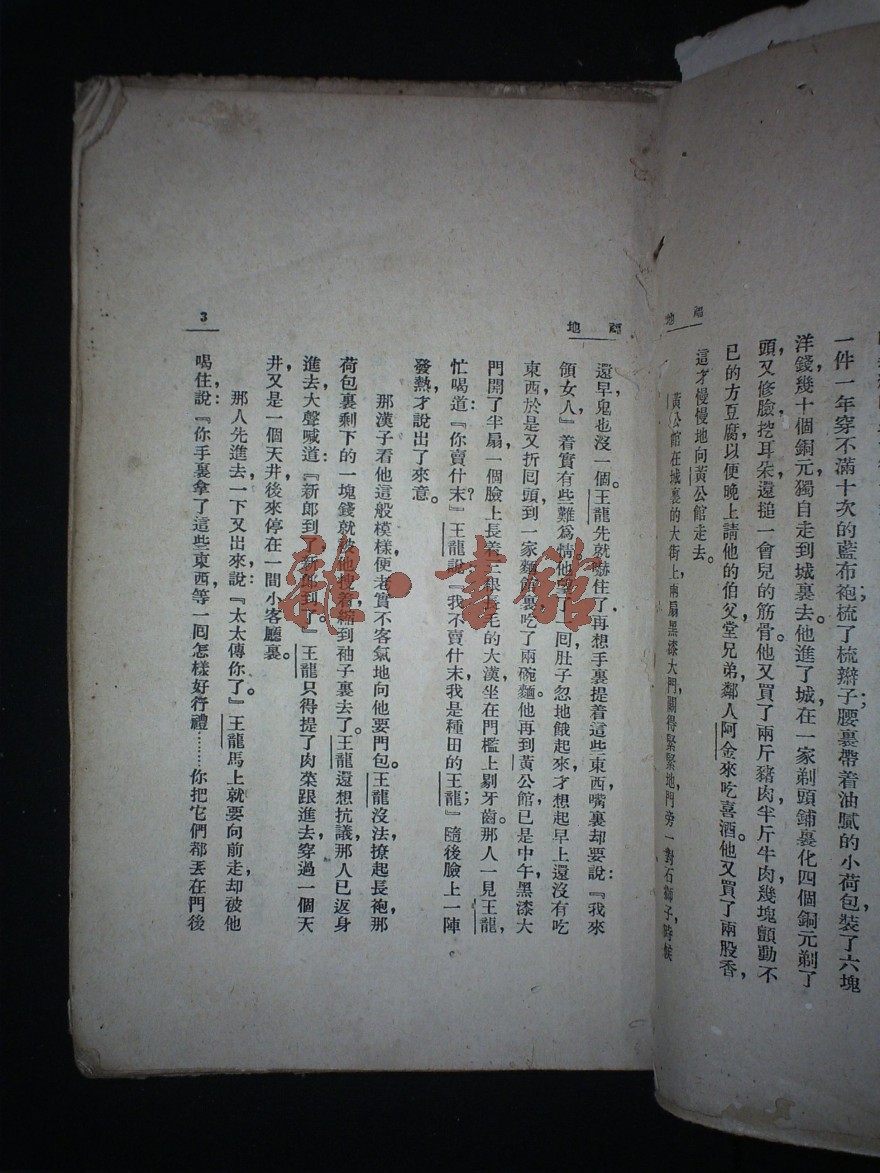 一件一年穿不滿十次的藍布袍，梳了梳辮子；腰裏帶着油膩的小荷包，裝了六塊
洋錢，幾十個銅元，獨自走到城裏去。他進了城，在一家剃頭鋪裏化四個銅元剃了
頭，又修臉，挖耳朵，還搥一會兒的筋骨。他又買了兩斤豬肉，半斤牛肉，幾塊顫動不
已的方豆腐，以便晚上請他的伯父，堂兄弟，鄰人阿金來吃喜酒。他又買了兩股香，
這才慢慢地向黃公館走去。
黃公館在城裏的大街上，兩扇黑漆大門，關得緊緊地，門旁一對石獅子，時候
福地
福地
還早，鬼也沒一個。王龍先就嚇住了，再想手裏提着這些東西，嘴裏却要說：『我來
領女人』着實有些難爲情，他
了一囘，肚子忽地餓起來，才想起早上還沒有吃
東西，於是又折囘頭，到一家麵館裏吃了兩碗麵。他再到黃公館，已是中午，黑漆大
門開了半扇，一個臉上長着三根長毛的大漢坐在門檻上剔牙齒。那人一見王龍，
忙喝道：『你賣什末？』王龍說：『我不賣什末，我是種田的王龍；』隨後臉上一陣
發熱，才說出了來意。
那漢子看他這般模樣，便老實不客氣地向他要門包。王龍沒法，撩起長袍，那
荷包裏剩下的一塊錢就被他搜着，縮到袖子裏去了。王龍還想抗議，那人已返身
進去，大聲喊道：『新郎到了，新郎到了。』王龍只得提了肉菜跟進去，穿過一個天
井，又是一個天井，後來停在一間小客廳裏。
那人先進去一下，又出來說：『太太傳你了。』王龍馬上就要向前走，却被他
喝住，說：『你手裏拿了這些東西，等一囘怎樣好行禮……你把它們都丟在門後
3
雜·書館